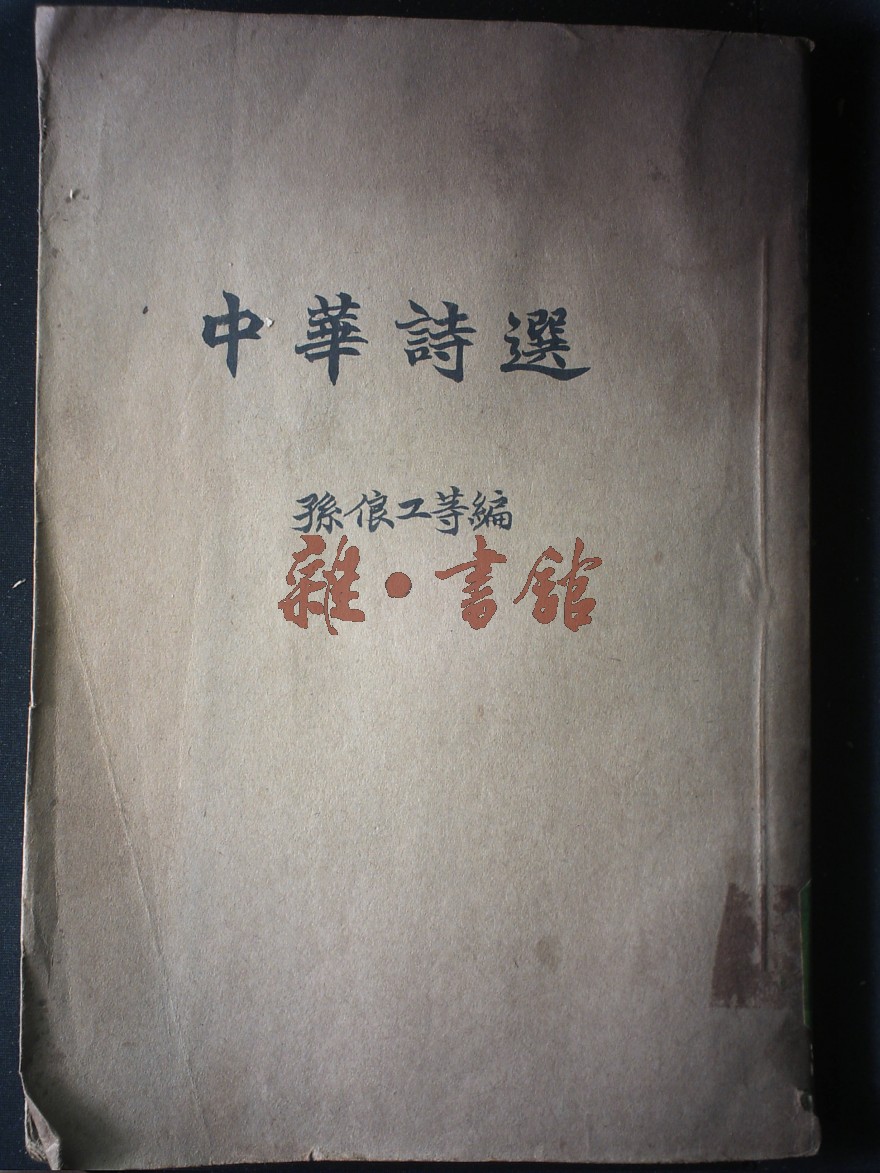 中華詩選
孫俍工等編
雜·書館